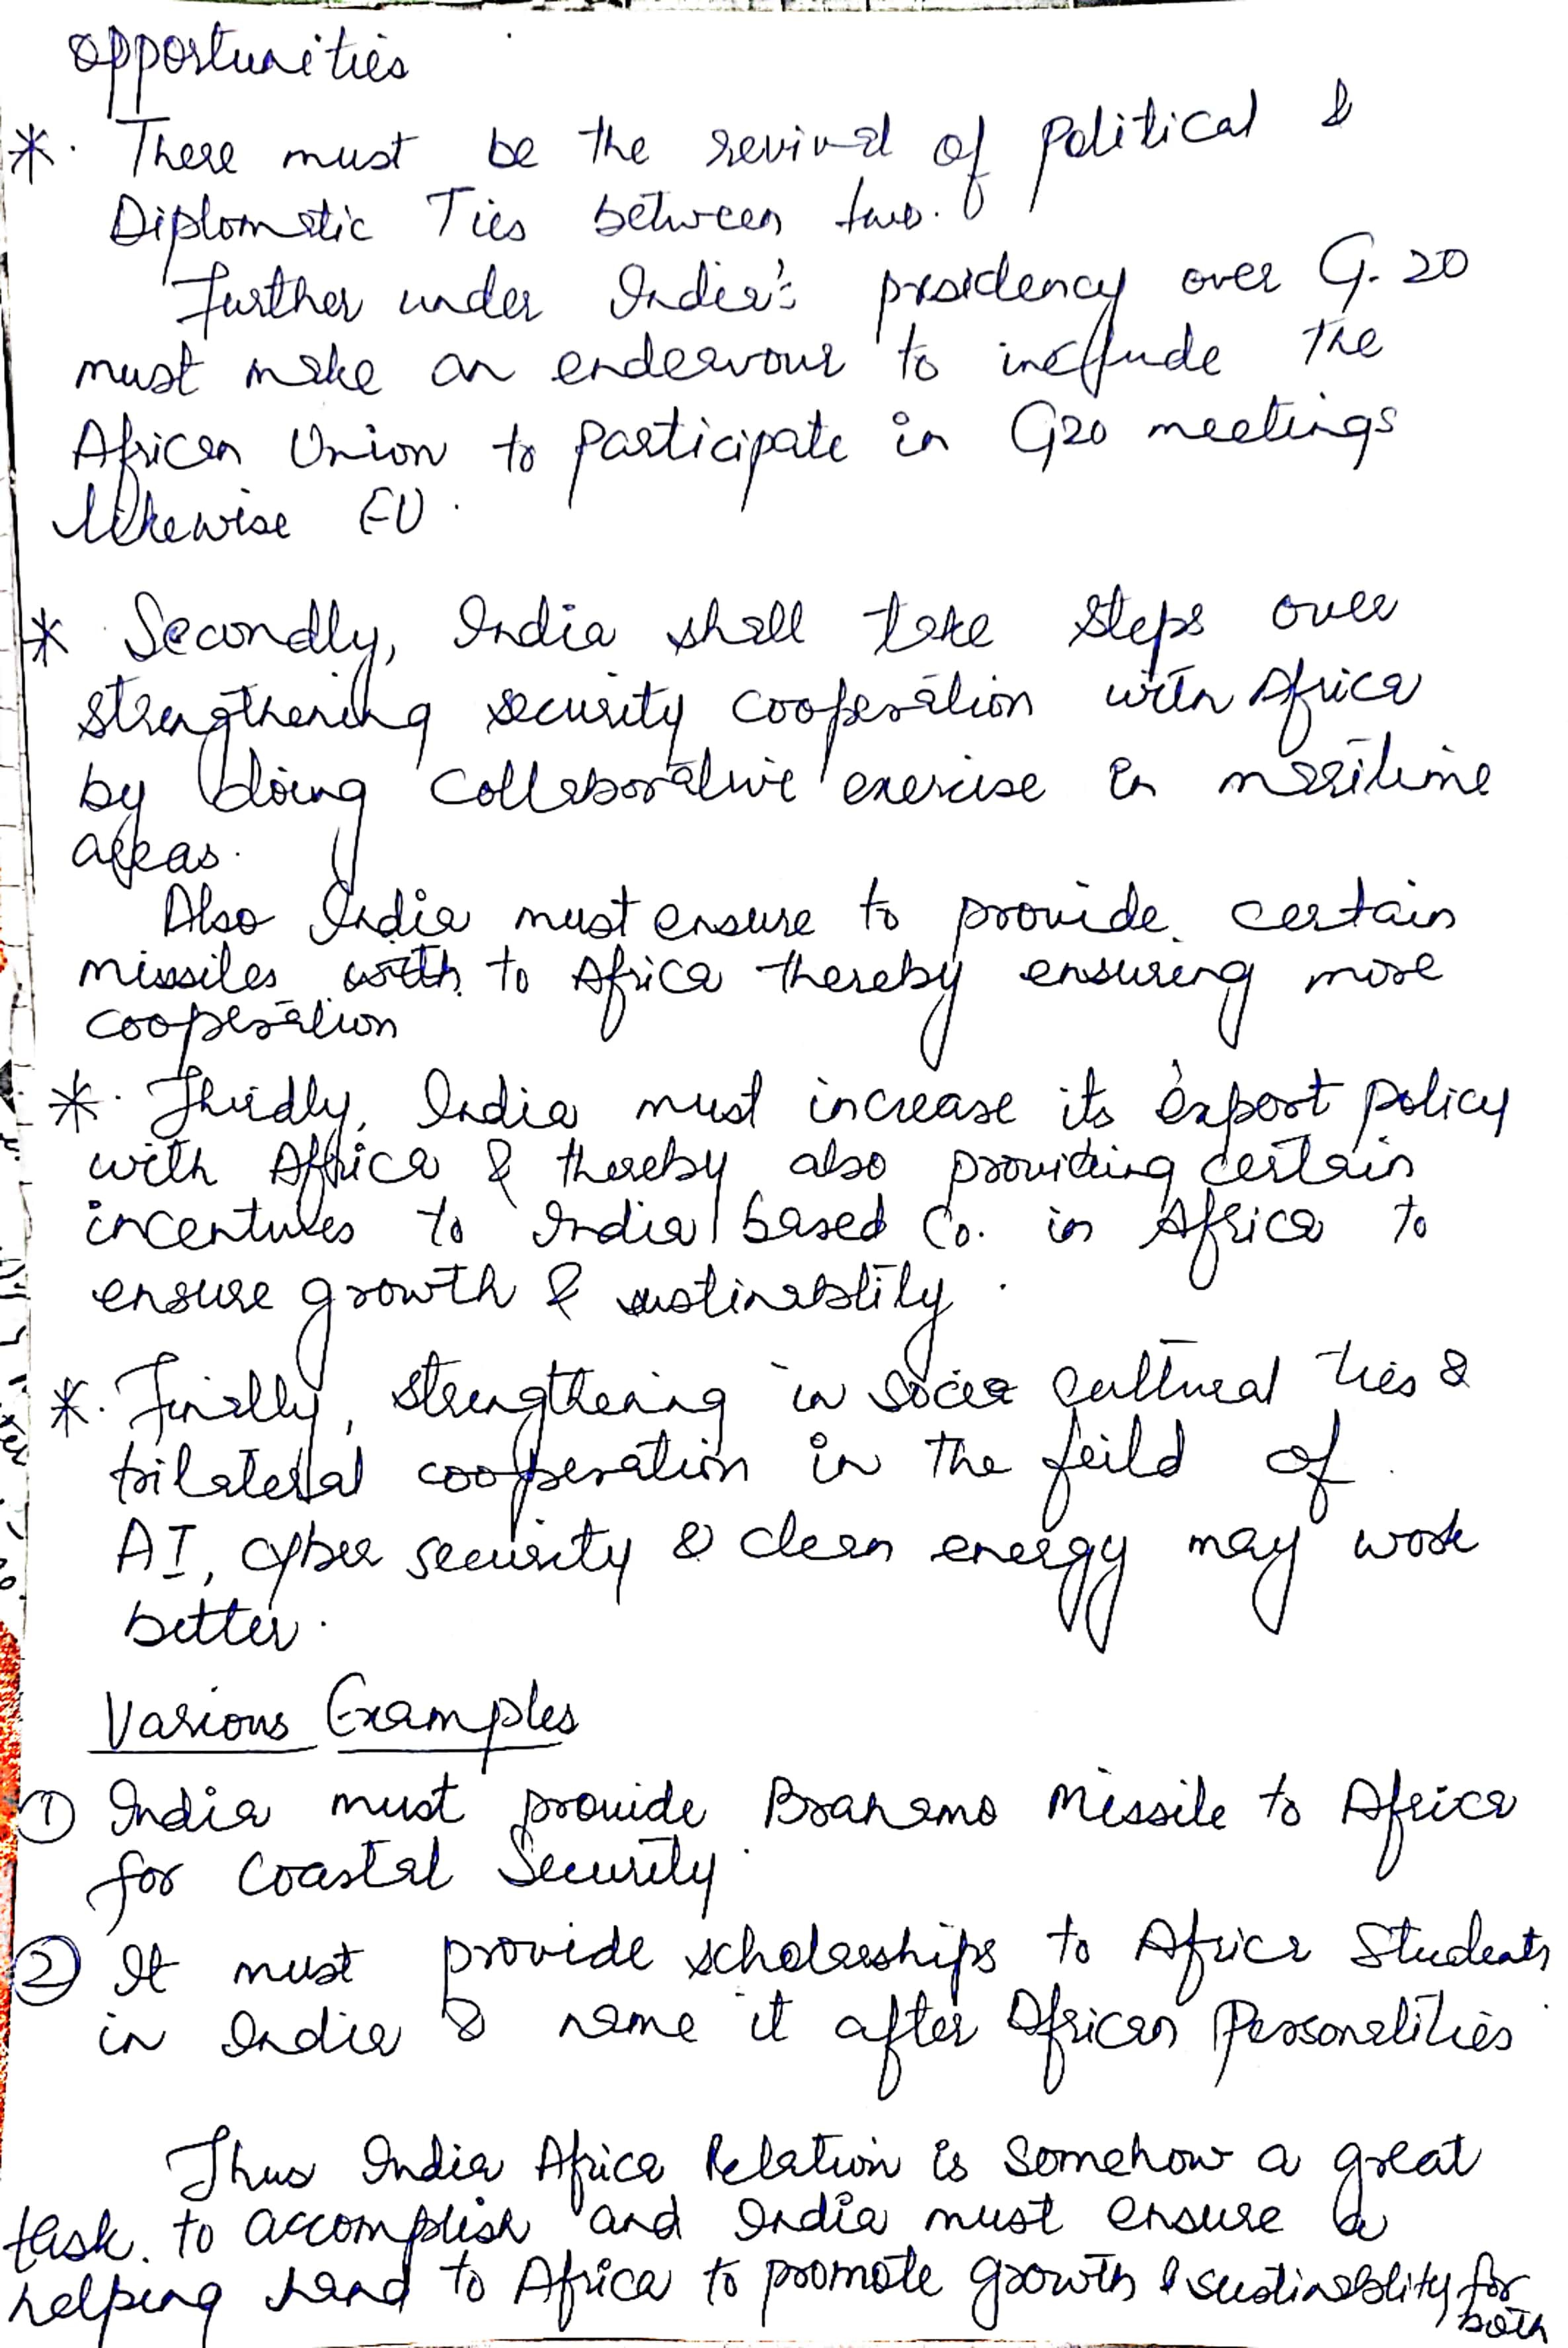 Opportunities
* There must be the revival of political &
Diplomatic Ties between two.
Further under India's presidency over G.20
must make an endeavour to include the
African Union to participate in G20 meetings
likewise EU.
* Secondly, India shall take steps over
strengthening security cooperation with Africa
by doing collaborative exercise in maritime
areas.
Also India must ensure to provide certain
missiles with to Africa thereby ensuring more
cooperation
* Thirdly, India must increase its export policy
with Africa & thereby also providing certain
incentives to India based Co. in Africa to
ensure growth & sustinablity.
* Finally, strengthening in socia cultural ties &
trilateral cooperation in the feild of
AI, cyber security & clean energy may work
better.
Various Examples
① India must provide Brahamo Missile to Africa
for Coastal Security.
② It must provide scholarships to Africa Students
in India & name it after African Personalities
Thus India Africa Relation is somehow a great
task. to accomplish and India must ensure a
helping hand to Africa to promote growth & sustinablity for
both